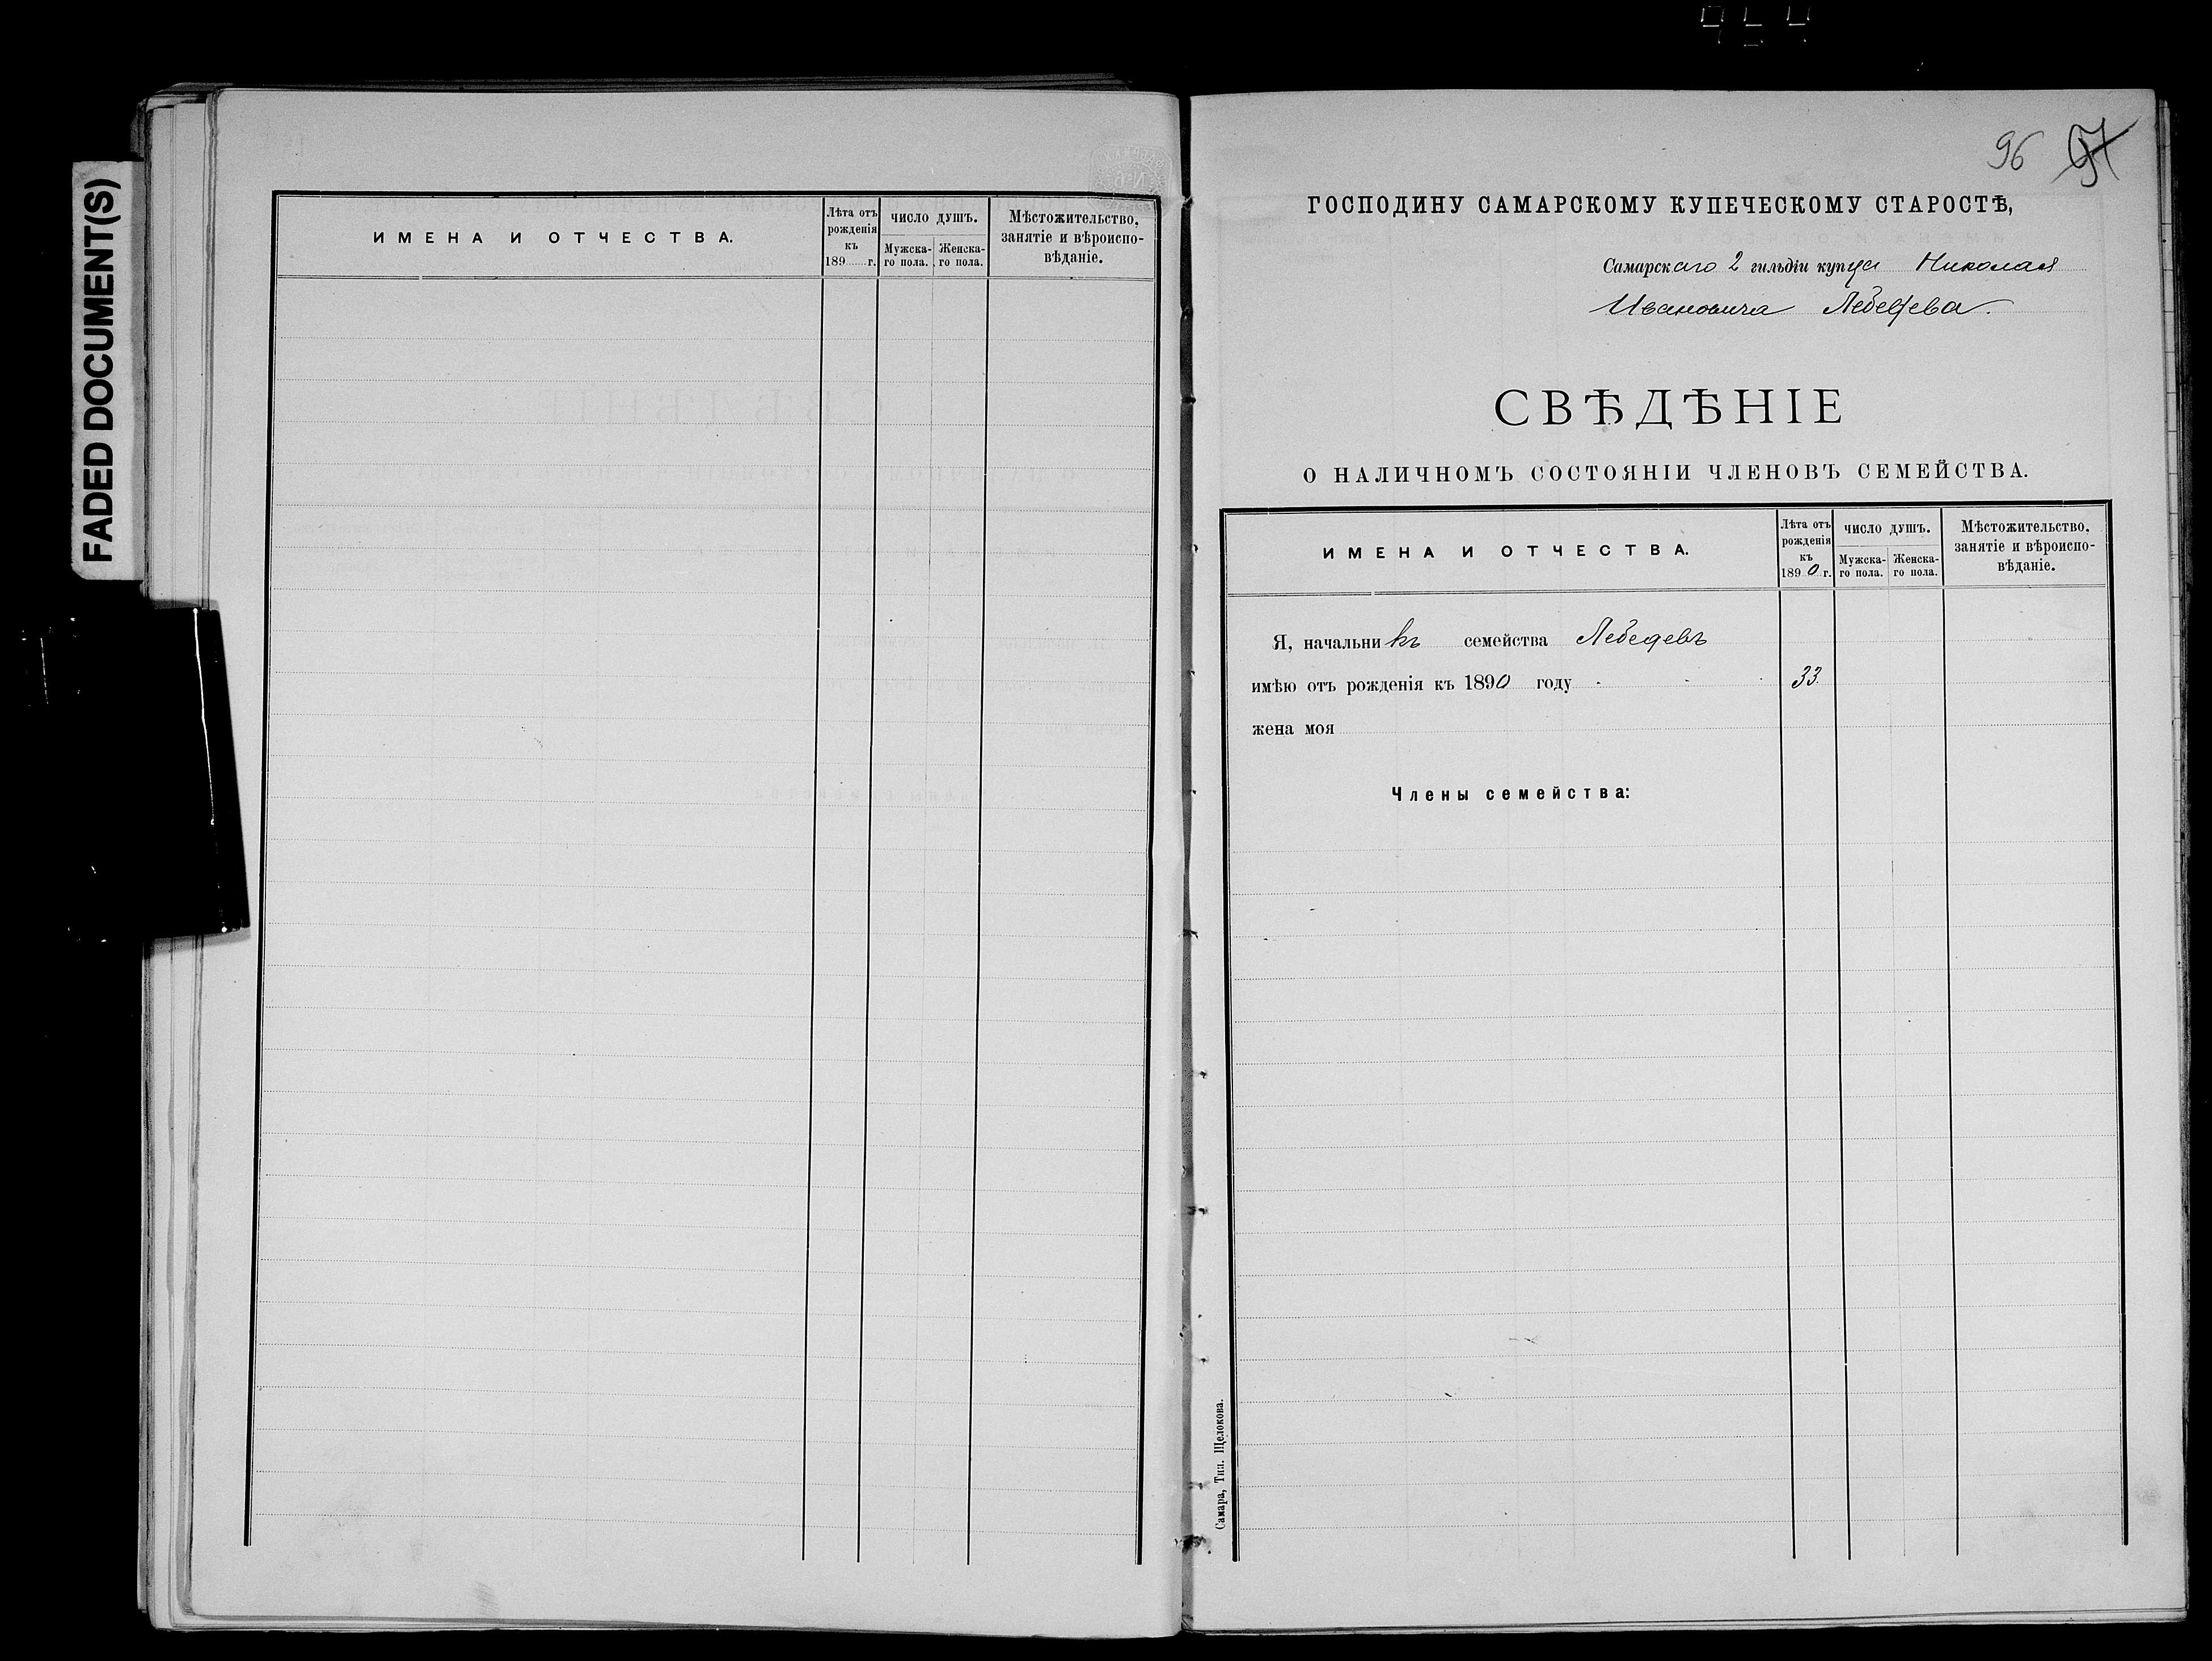 FADED DOCUMENT(S)
ИМЕНА И ОТЧЕСТВА.
Лѣта отъ рожденія къ 189 г.
ЧИСЛО ДУШЪ.
Мужска-го пола.
Женска-го пола.
Мѣстожительство,
занятіе и вѣроиспо-
вѣданіе.
96 97
ГОСПОДИНУ САМАРСКОМУ КУПЕЧЕСКОМУ СТАРОСТѢ,
Самарскаго 2 гильдіи купца Николая
Ивановича Лебедева.
СВѢДѢНІЕ
О НАЛИЧНОМЪ СОСТОЯНІИ ЧЛЕНОВЪ СЕМЕЙСТВА.
ИМЕНА И ОТЧЕСТВА.
Лѣта отъ рожденія къ 1890 г.
ЧИСЛО ДУШЪ.
Мужска-го пола.
Женска-го пола.
Мѣстожительство,
занятіе и вѣроиспо-
вѣданіе.
Я, начальникъ семейства Лебедевъ
имѣю отъ рожденія къ 1890 году 33
жена моя
Члены семейства:
Самара, Тип. Щелокова.